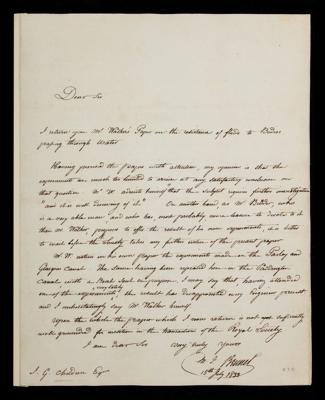 Dear Sir
I return you Mr Walker's Paper on the resistance of fluids to Bodies
passing through Water
Having perused the paper with attention, my opinion is that the
experiments are much too limited to arrive at any satisfactory conclusion on
that question Mr W admits himself that the subject requires further investigation
"and it is well deserving of it." On another hand as Mr Bidder, who
is a very able man and who has most probably more leisure to devote to it
than Mr Walker, proposes to offer the result of his own experiments, it is better
to wait before the Society takes any further notice of the present paper
Mr W. notices in his own paper the experiments made in the Paisley and
Glasgow Canal. The same having been repeated here in the Paddington
Canal with a Boat built on purpose, I may say that having attended
one of the experiments, the result has disappointed every Engineer present
and I understandingly say Mr Walker himself
Upon the whole the paper which I now return is not sufficiently
well grounded for insertion in the transactions of the Royal Society
I am dear Sir very truly yours
M. I. Brunel
15th July 1833
J. G. Children Esqr